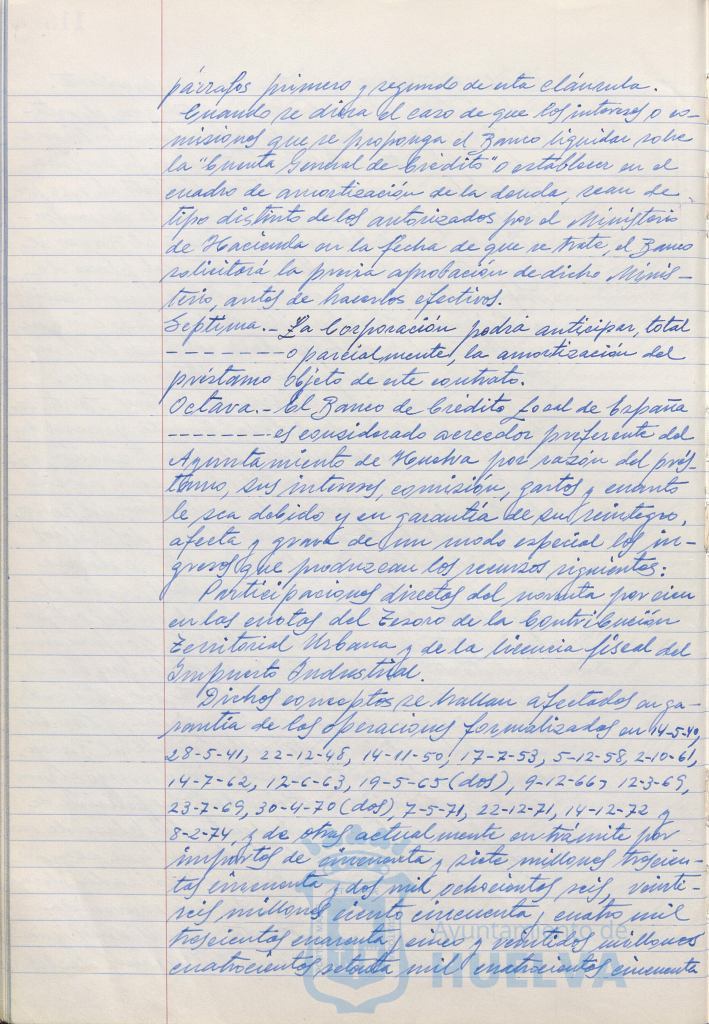 párrafos primero y segundo de esta cláusula.
Cuando se diera el caso de que los intereses o co-
misiones que se proponga el Banco liquidar sobre
la "Cuenta General de Crédito" o establecer en el
cuadro de amortización de la deuda, sean de
tipo distinto de los autorizados por el Ministerio
de Hacienda en la fecha de que se trate, el Banco
solicitará la previa aprobación de dicho Minis-
terio, antes de hacerlos efectivos.
Septima.- La Corporación podrá anticipar, total
------- o parcialmente, la amortización del
préstamo objeto de este contrato.
Octava.- El Banco de Crédito Local de España
-------- es considerado acreedor preferente del
Ayuntamiento de Huelva por razón del prés-
tamo, sus intereses, comisión, gastos y cuanto
le sea debido y en garantía de su reintegro,
afecta y grava de un modo especial los in-
gresos que produzcan los recursos siguientes:
Participaciones directas del noventa por cien
en las cuotas del Tesoro de la Contribución
Territorial Urbana y de la licencia fiscal del
Impuesto Industrial.
Dichos conceptos se hallan afectados en ga-
rantía de las operaciones formalizadas en 14-5-40,
28-5-41, 22-12-48, 14-11-50, 17-7-53, 5-12-58, 2-10-61,
14-7-62, 12-6-63, 19-5-65 (dos), 9-12-66, 12-3-69,
23-7-69, 30-4-70 (dos), 7-5-71, 22-12-71, 14-12-72 y
8-2-74, y de otras actualmente en trámite por
importes de cincuenta y siete millones trescien-
tas cincuenta y dos mil ochocientas seis, veinti-
seis millones ciento cincuenta y cuatro mil
trescientas cuarenta y cinco y veintidos millones
cuatrocientas setenta mil cuatrocientas cincuenta
Ayuntamiento de
HUELVA